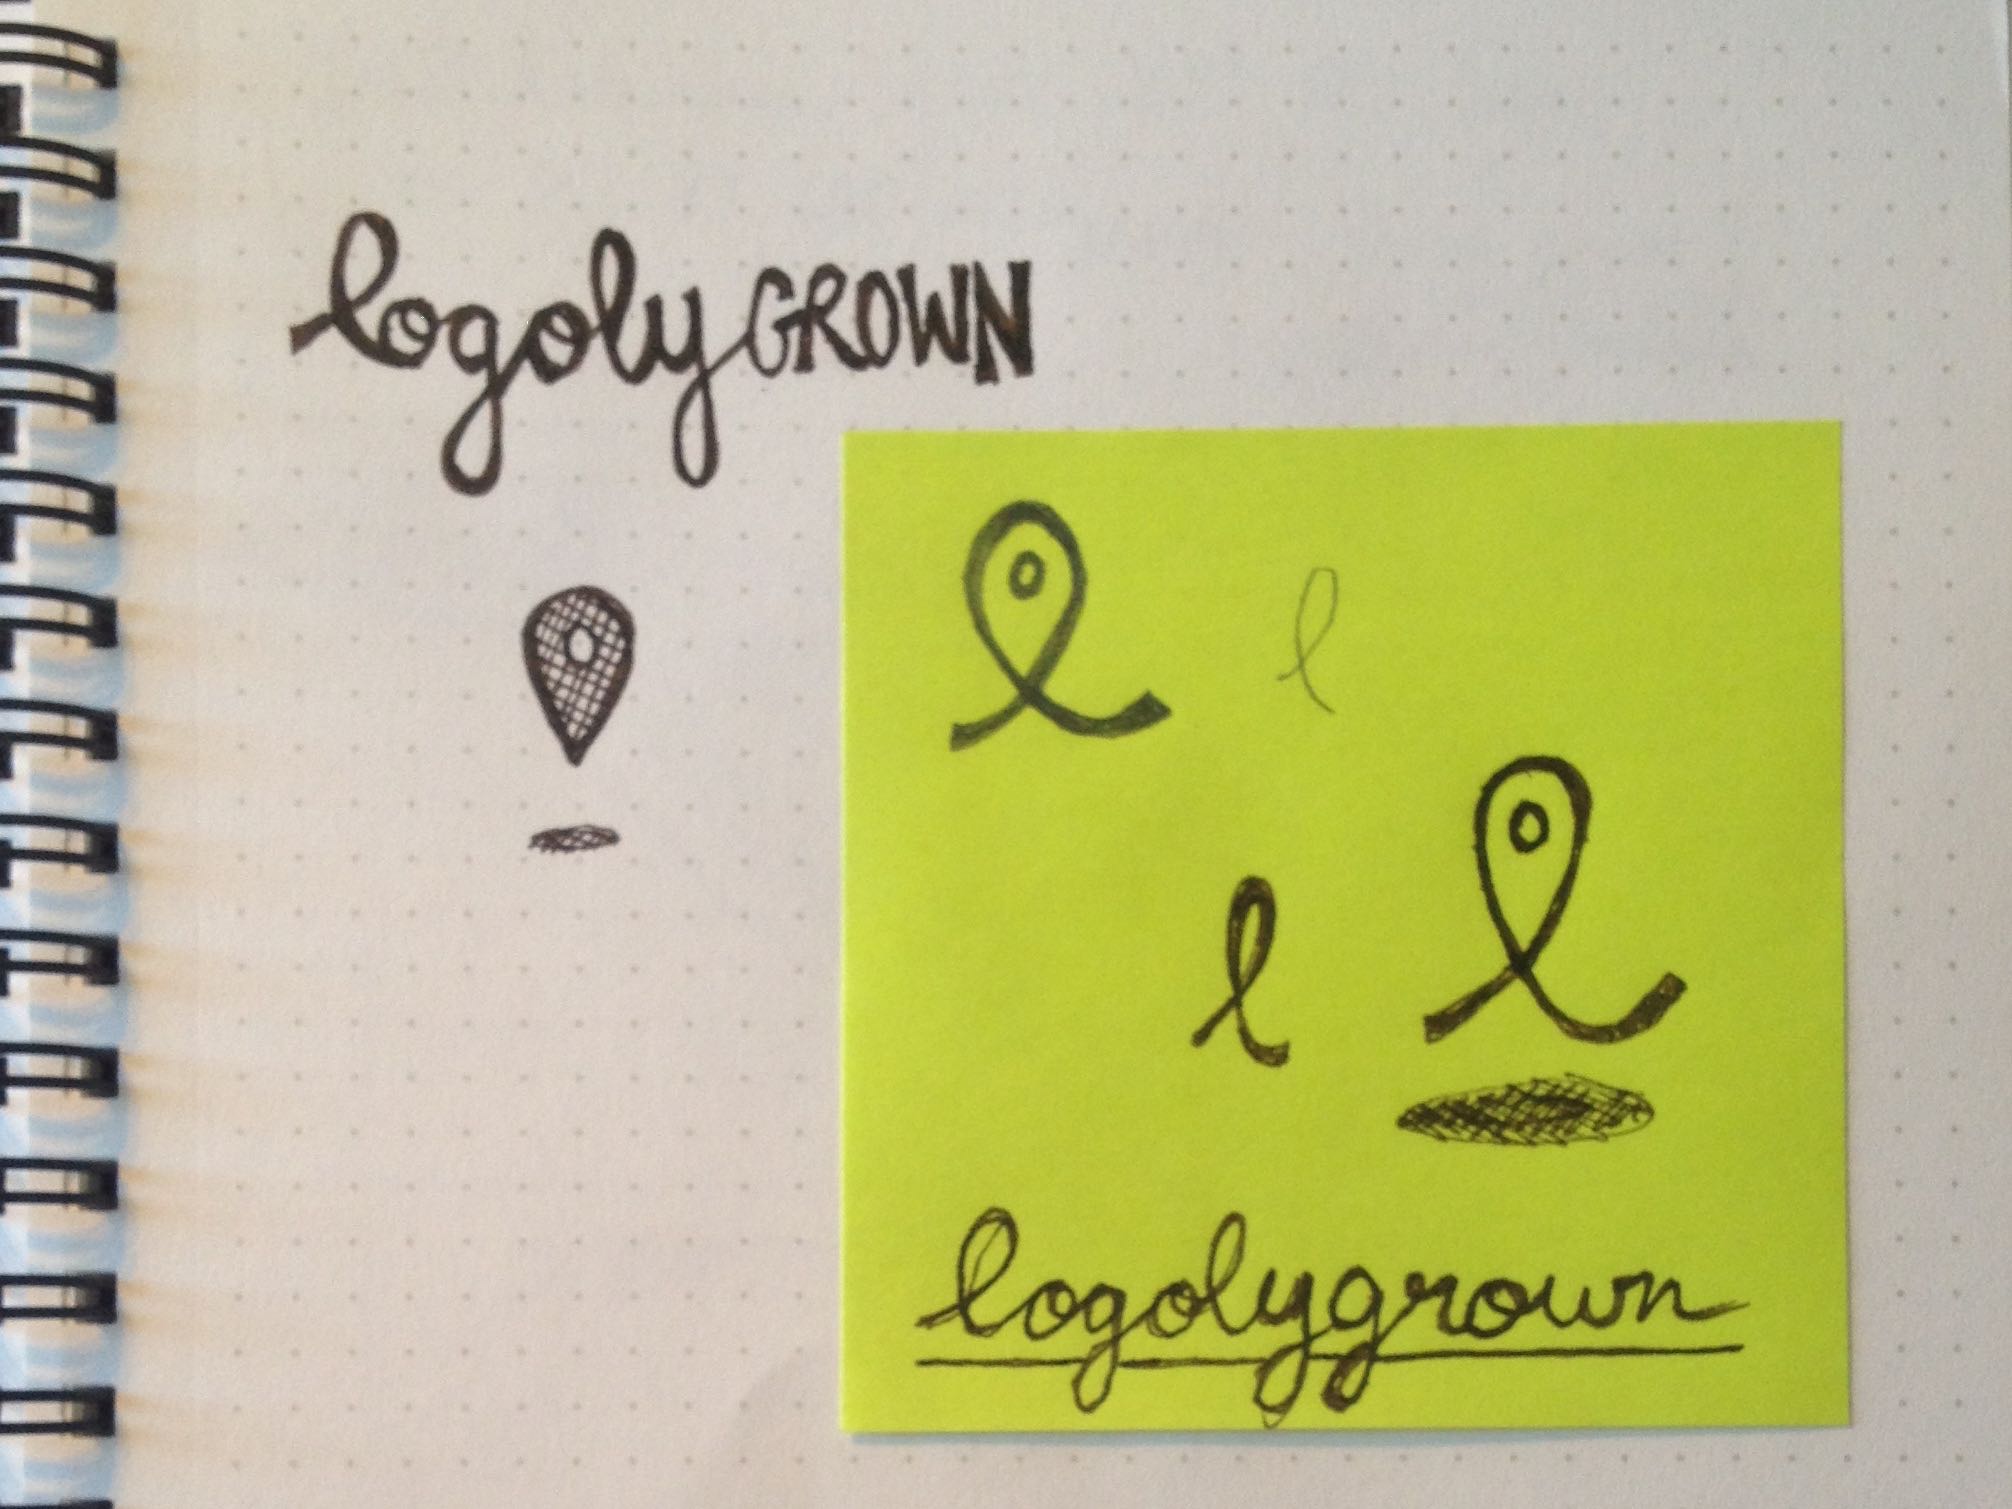 logolyGROWN
l l
l l
logolygrown